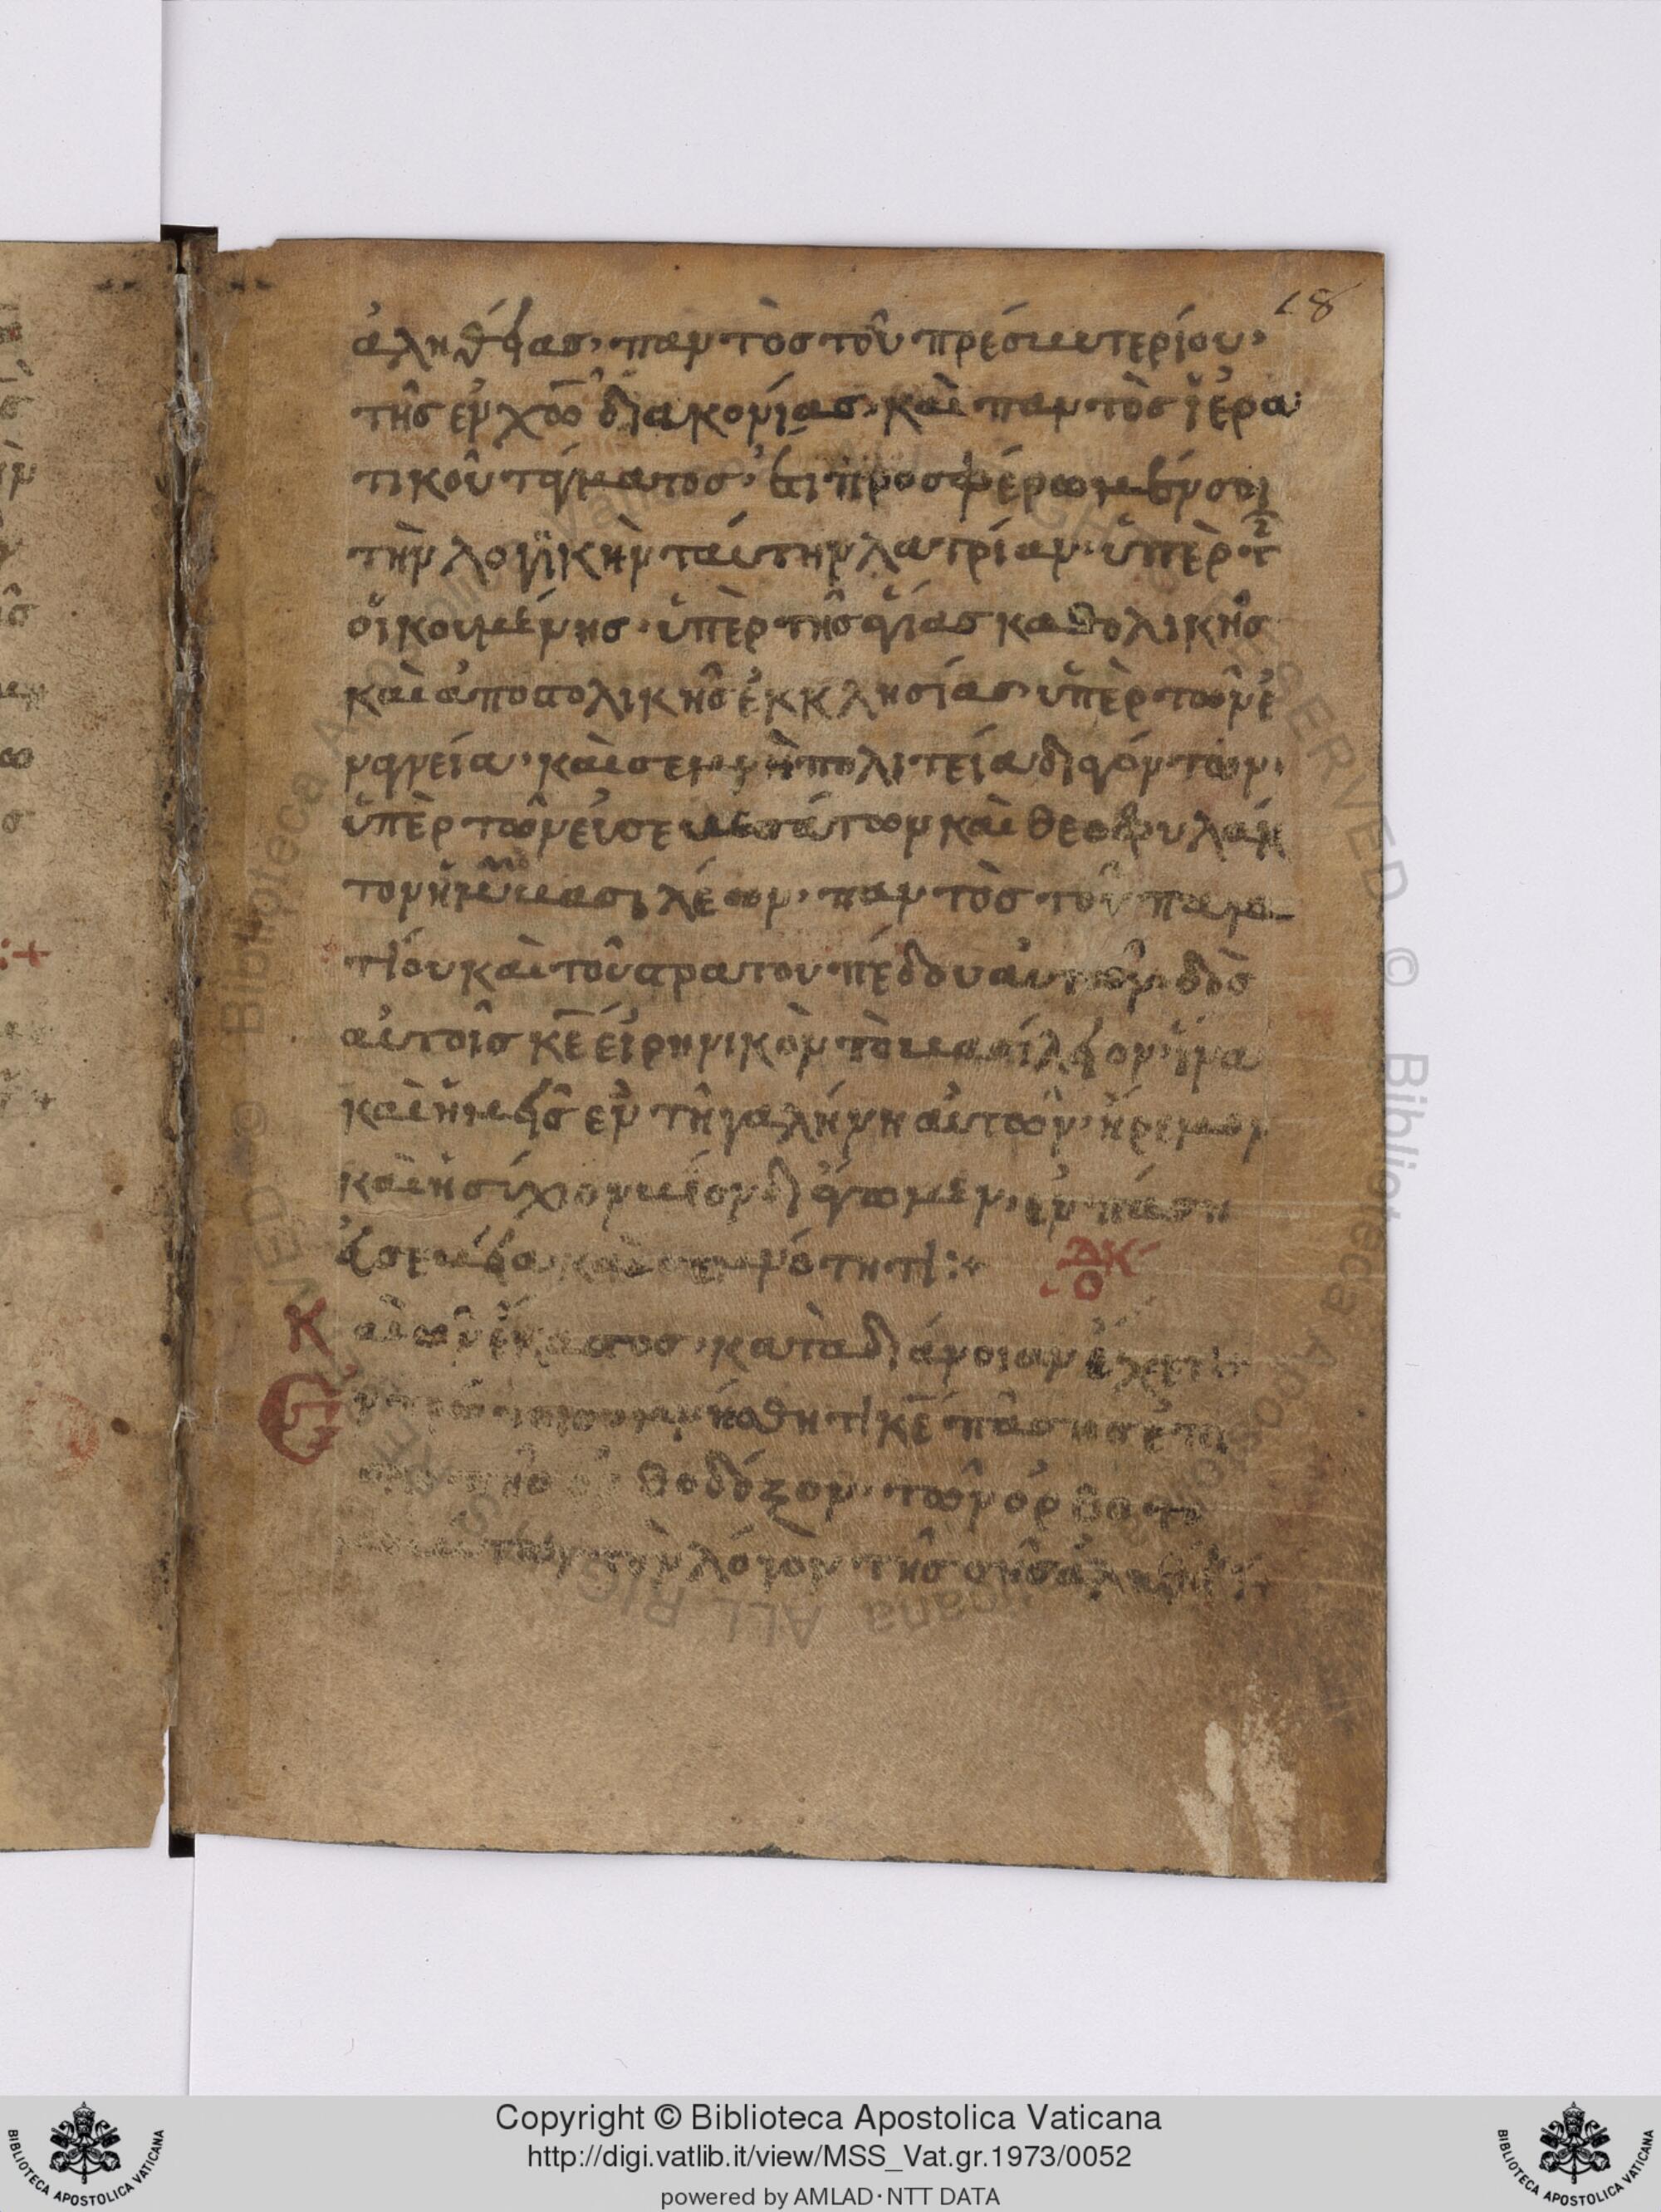 18
ἀληθείας, παντὸς τοῦ πρέσβυτερίου,
τῆς ἐν χῶ διακονίας, καὶ παντὸς ἱερα
τικοῦ τάγματος, ἔτι προσφέρωμέν σοι
τὴν λογϊκὴν ταύτην λατρίαν· ὑπὲρ τ
οἰκουμένης· ὑπὲρ τῆς ἁγίας καθολικῆς
καὶ ἀποστολικῆς ἐκκλησίας· ὑπὲρ τῶν ἐ
ν ἁγνεία, καὶ σεμνὴ πολιτεία διαγόντων,
ὑπὲρ τῶν εὐσεβεστάτων καὶ θεοφυλάκ
τον ἡμῶν βασιλέων, παντὸς τοῦ παλα
τίου καὶ τοῦ στρατοπέδου αὐτῶν· δὸς
αὐτοῖς κε εἰρηνικὸν τὸ βασίλειον, ἵνα
καὶ ἡμεῖς ἐν τῆ γαλήνη αὐτῶν, ἤρεμον
καὶ ἡσύχιον βίον διάγωμεν, ἐν πάση
εὐσεβεία καὶ σεμνότητι :+ ΔΚ
Ο
Καὶ ὧν ἕκαστος κατὰ διάνοιαν ἔχει
Ἐν μνήσθητι κε πάσης ἐπι
σκοπῆς ὀρθοδόξον· τῶν ὀρθοτο
μούντων τὸν λόγον τῆς σῆς ἀληθεί
Copyright © Biblioteca Apostolica Vaticana
http://digi.vatlib.it/view/MSS_Vat.gr.1973/0052
powered by AMLAD·NTT DATA
BIBLIOTECA APOSTOLICA VATICANA
BIBLIOTECA APOSTOLICA VATICANA